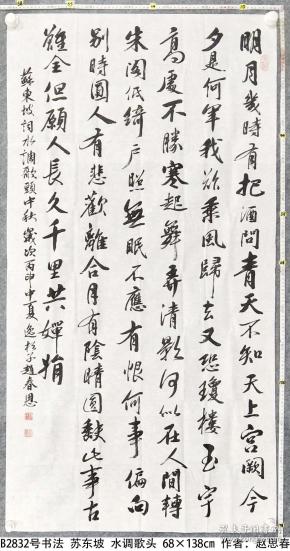 明月幾時有把酒問青天不知天上宫阙今
夕是何年我欲乘風歸去又恐瓊樓玉宇
高處不勝寒起舞弄清影何似在人間轉
朱阁低綺户照無眠不應有恨何事偏向
别時圓人有悲歡離合月有陰晴圓缺此事古
難全但願人長久千里共嬋娟
蘇東坡詞水調歌頭中秋歲次丙申中夏逸松子趙春恩
B2832号书法 苏东坡 水调歌头 68×138cm 作者：赵思春